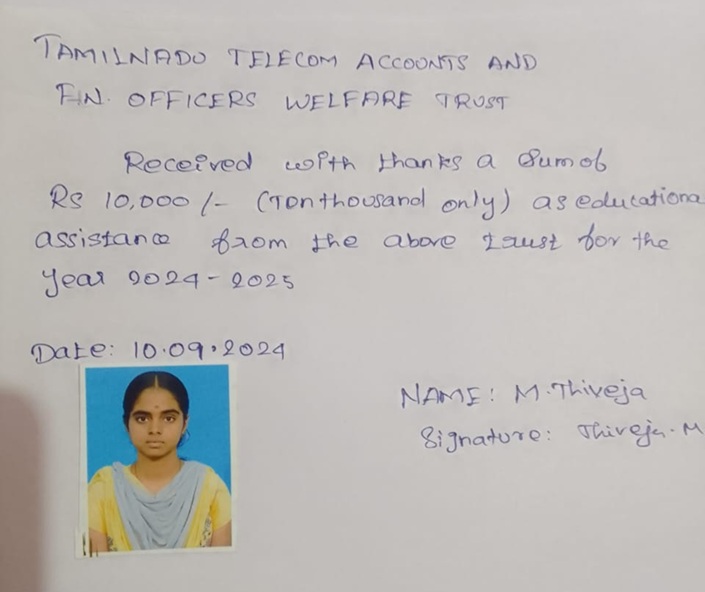 TAMILNADO TELECOM ACCOUNTS AND
FIN. OFFICERS WELFARE TRUST
Received with thanks a sum of
RS 10,000/- (Ten thousand only) as educationa
assistance from the above trust for the
year 2024-2025
Date: 10.09.2024
NAME: M.Thiveja
Signature: Thiveja.M